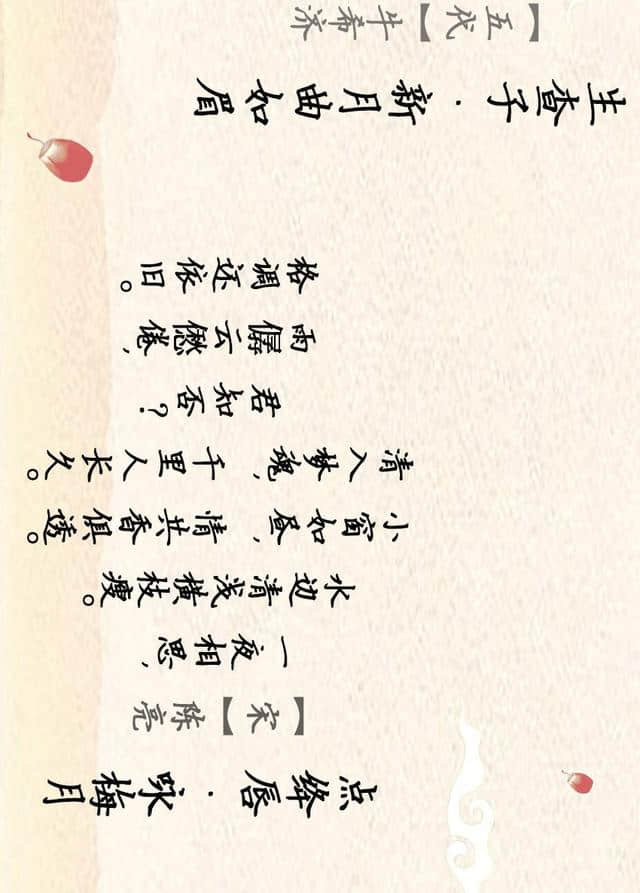 点绛唇·咏梅月
【宋】陈亮
一夜相思，
水边清浅横枝瘦。
小窗如昼，情共香俱透。
清入梦魂，千里人长久。
君知否？
雨僝云僽，
格调还依旧。
生查子·新月曲如眉
【五代】牛希济